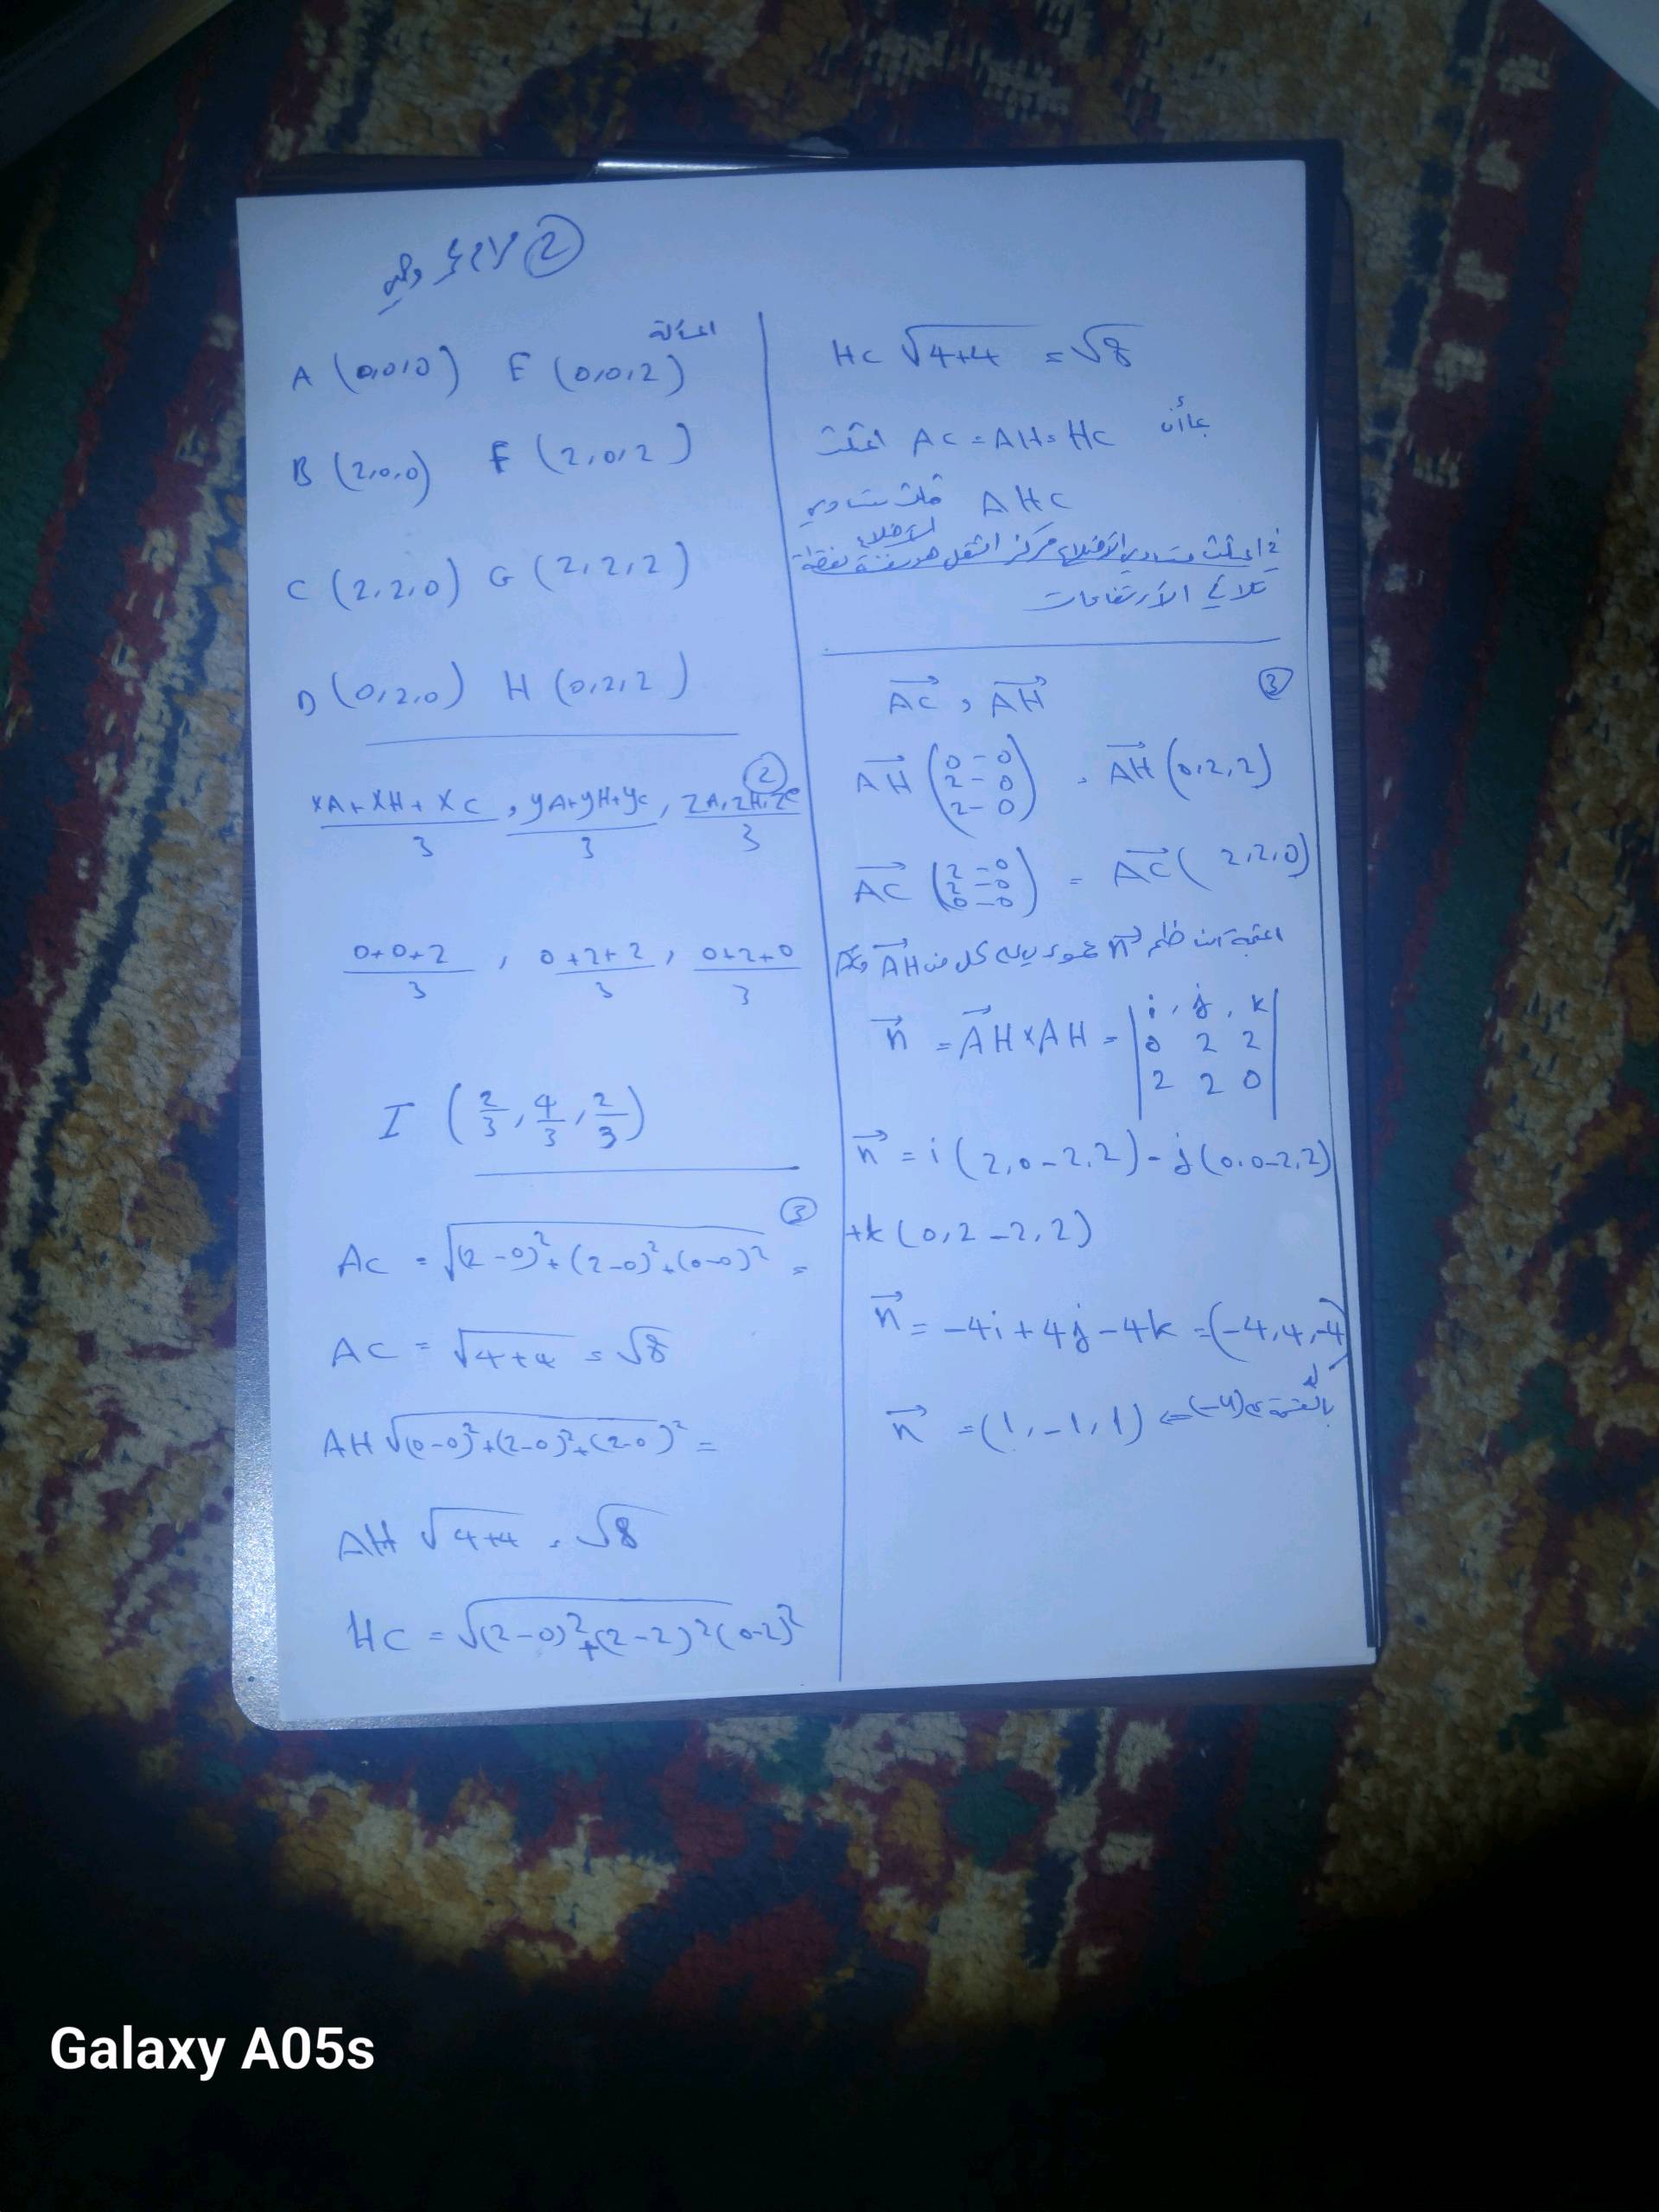 ②
المسألة
A (0,0,0) E (0,0,2)
B (2,0,0) F (2,0,2)
C (2,2,0) G (2,2,2)
D (0,2,0) H (0,2,2)
②
xA+xH+xC / 3 , yA+yH+yC / 3 , zA, zH, zC / 3
0+0+2 / 3 , 0+2+2 / 3 , 0+2+0 / 3
I (2/3, 4/3, 2/3)
③
AC = √(2-0)²+(2-0)²+(0-0)² =
AC = √4+4 = √8
AH √(0-0)²+(2-0)²+(2-0)² =
AH √4+4 = √8
HC = √(2-0)²+(2-2)²(0-2)²
HC √4+4 = √8
بما أن AC = AH = HC المثلث
AHC مثلث متساوي
الأضلاع
في المثلث متساوي الأضلاع مركز الثقل هو نفسه نقطة
تلاقي الارتفاعات
③
AC , AH
AH (0-0 2-0 2-0) = AH (0,2,2)
AC (2-0 2-0 0-0) = AC ( 2,2,0)
n عمودي على كل من AH و AC
n = AH×AH = |i, j, k
0 2 2
2 2 0|
n = i (2,0-2,2) - j (0,0-2,2)
+k (0,2-2,2)
n = -4i+4j-4k = (-4,4,-4)
n = (1,-1,1) ⇐ (-4) بالقسمة على
Galaxy A05s